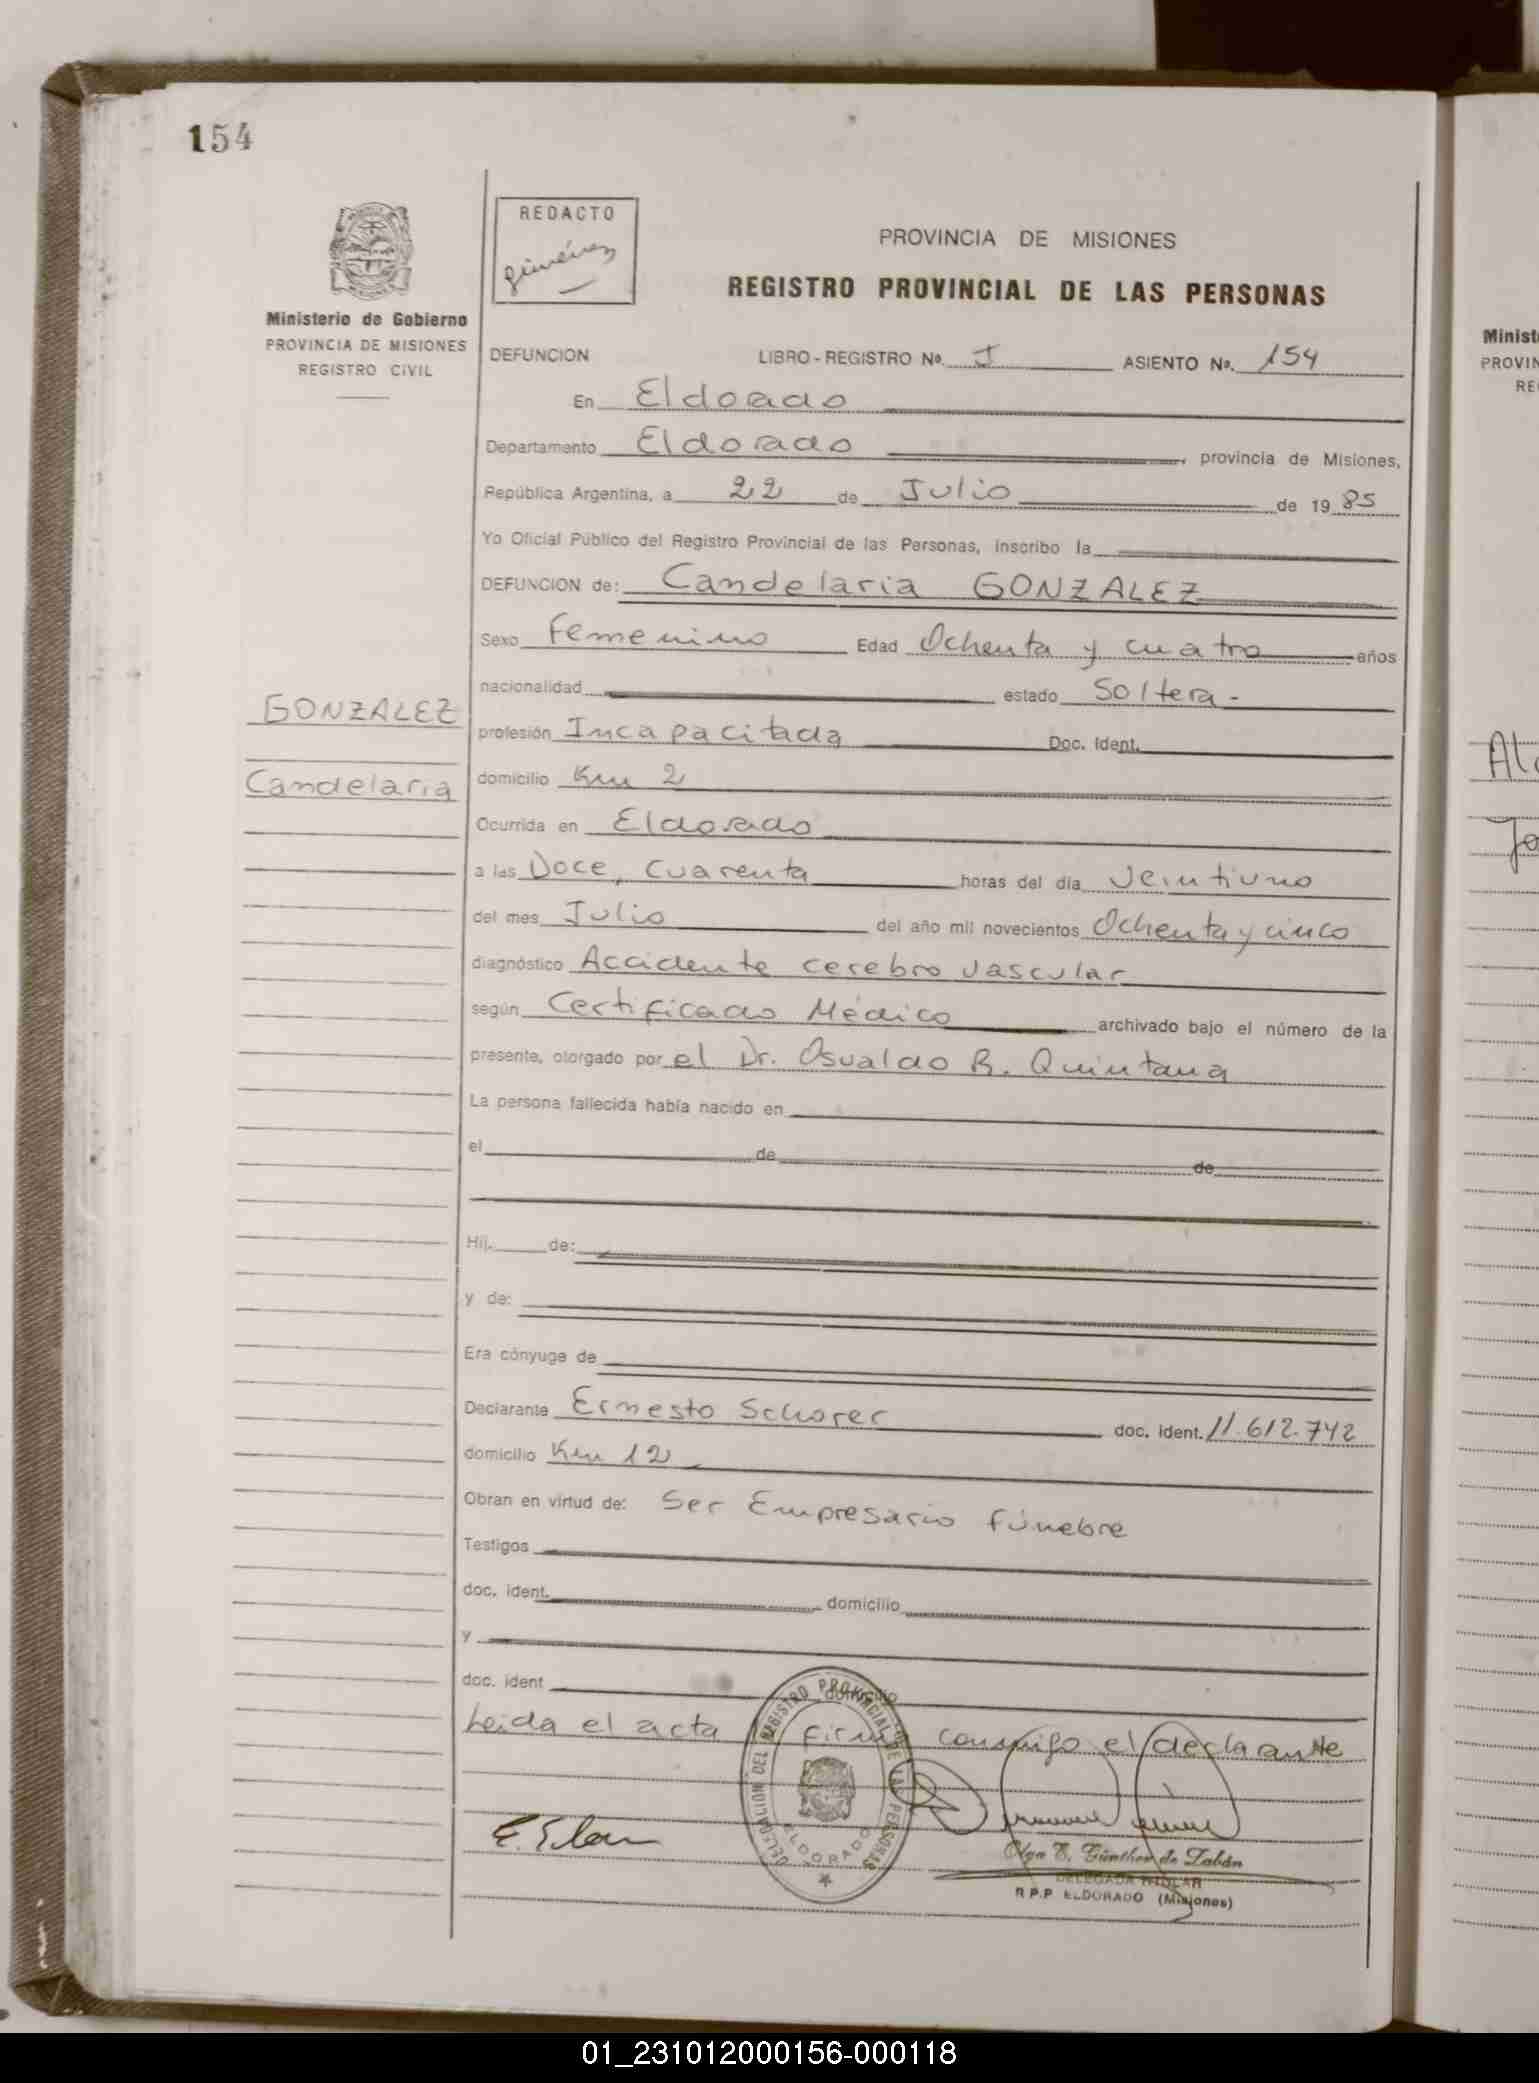 154
REDACTO
Giménez
PROVINCIA DE MISIONES
REGISTRO PROVINCIAL DE LAS PERSONAS
Ministerio de Gobierno
PROVINCIA DE MISIONES
REGISTRO CIVIL
DEFUNCION LIBRO - REGISTRO No. I ASIENTO No. 154
En Eldorado
Departamento Eldorado, provincia de Misiones,
República Argentina, a 22 de Julio de 1985
Yo Oficial Público del Registro Provincial de las Personas, inscribo la
DEFUNCION de: Candelaria GONZALEZ
Sexo Femenino Edad Ochenta y cuatro años
nacionalidad estado Soltera-
GONZALEZ
Candelaria
profesión Incapacitada Doc. Ident.
domicilio Km 2
Ocurrida en Eldorado
a las Doce, cuarenta horas del día veintiuno
del mes Julio del año mil novecientos Ochenta y cinco
diagnóstico Accidente cerebro vascular
según Certificado Médico archivado bajo el número de la
presente, otorgado por el Dr. Osvaldo R. Quintana
La persona fallecida había nacido en
el de de
Hij. de:
y de:
Era cónyuge de
Declarante Ernesto Schorer doc. ident. 11.612.742
domicilio Km 12
Obran en virtud de: Ser Empresario fúnebre
Testigos
doc. ident. domicilio
y
doc. ident domicilio
Leida el acta firma conmigo el declarante
DELEGACION DEL REGISTRO PROVINCIAL DE LAS PERSONAS
ELDORADO
Olga E. Günther de Zabán
DELEGADA TITULAR
R.P.P ELDORADO (Misiones)
Minist
PROVIN
RE
01_231012000156-000118